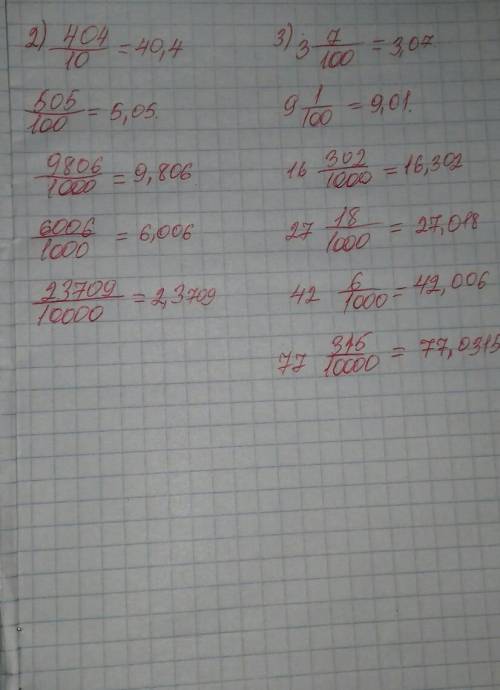 2) 404/10 = 40,4
505/100 = 5,05.
9806/1000 = 9,806
6006/1000 = 6,006
23709/10000 = 2,3709
3) 3 7/100 = 3,07.
9 1/100 = 9,01.
16 302/1000 = 16,302
27 18/1000 = 27,018
42 6/1000 = 42,006
77 315/10000 = 77,0315